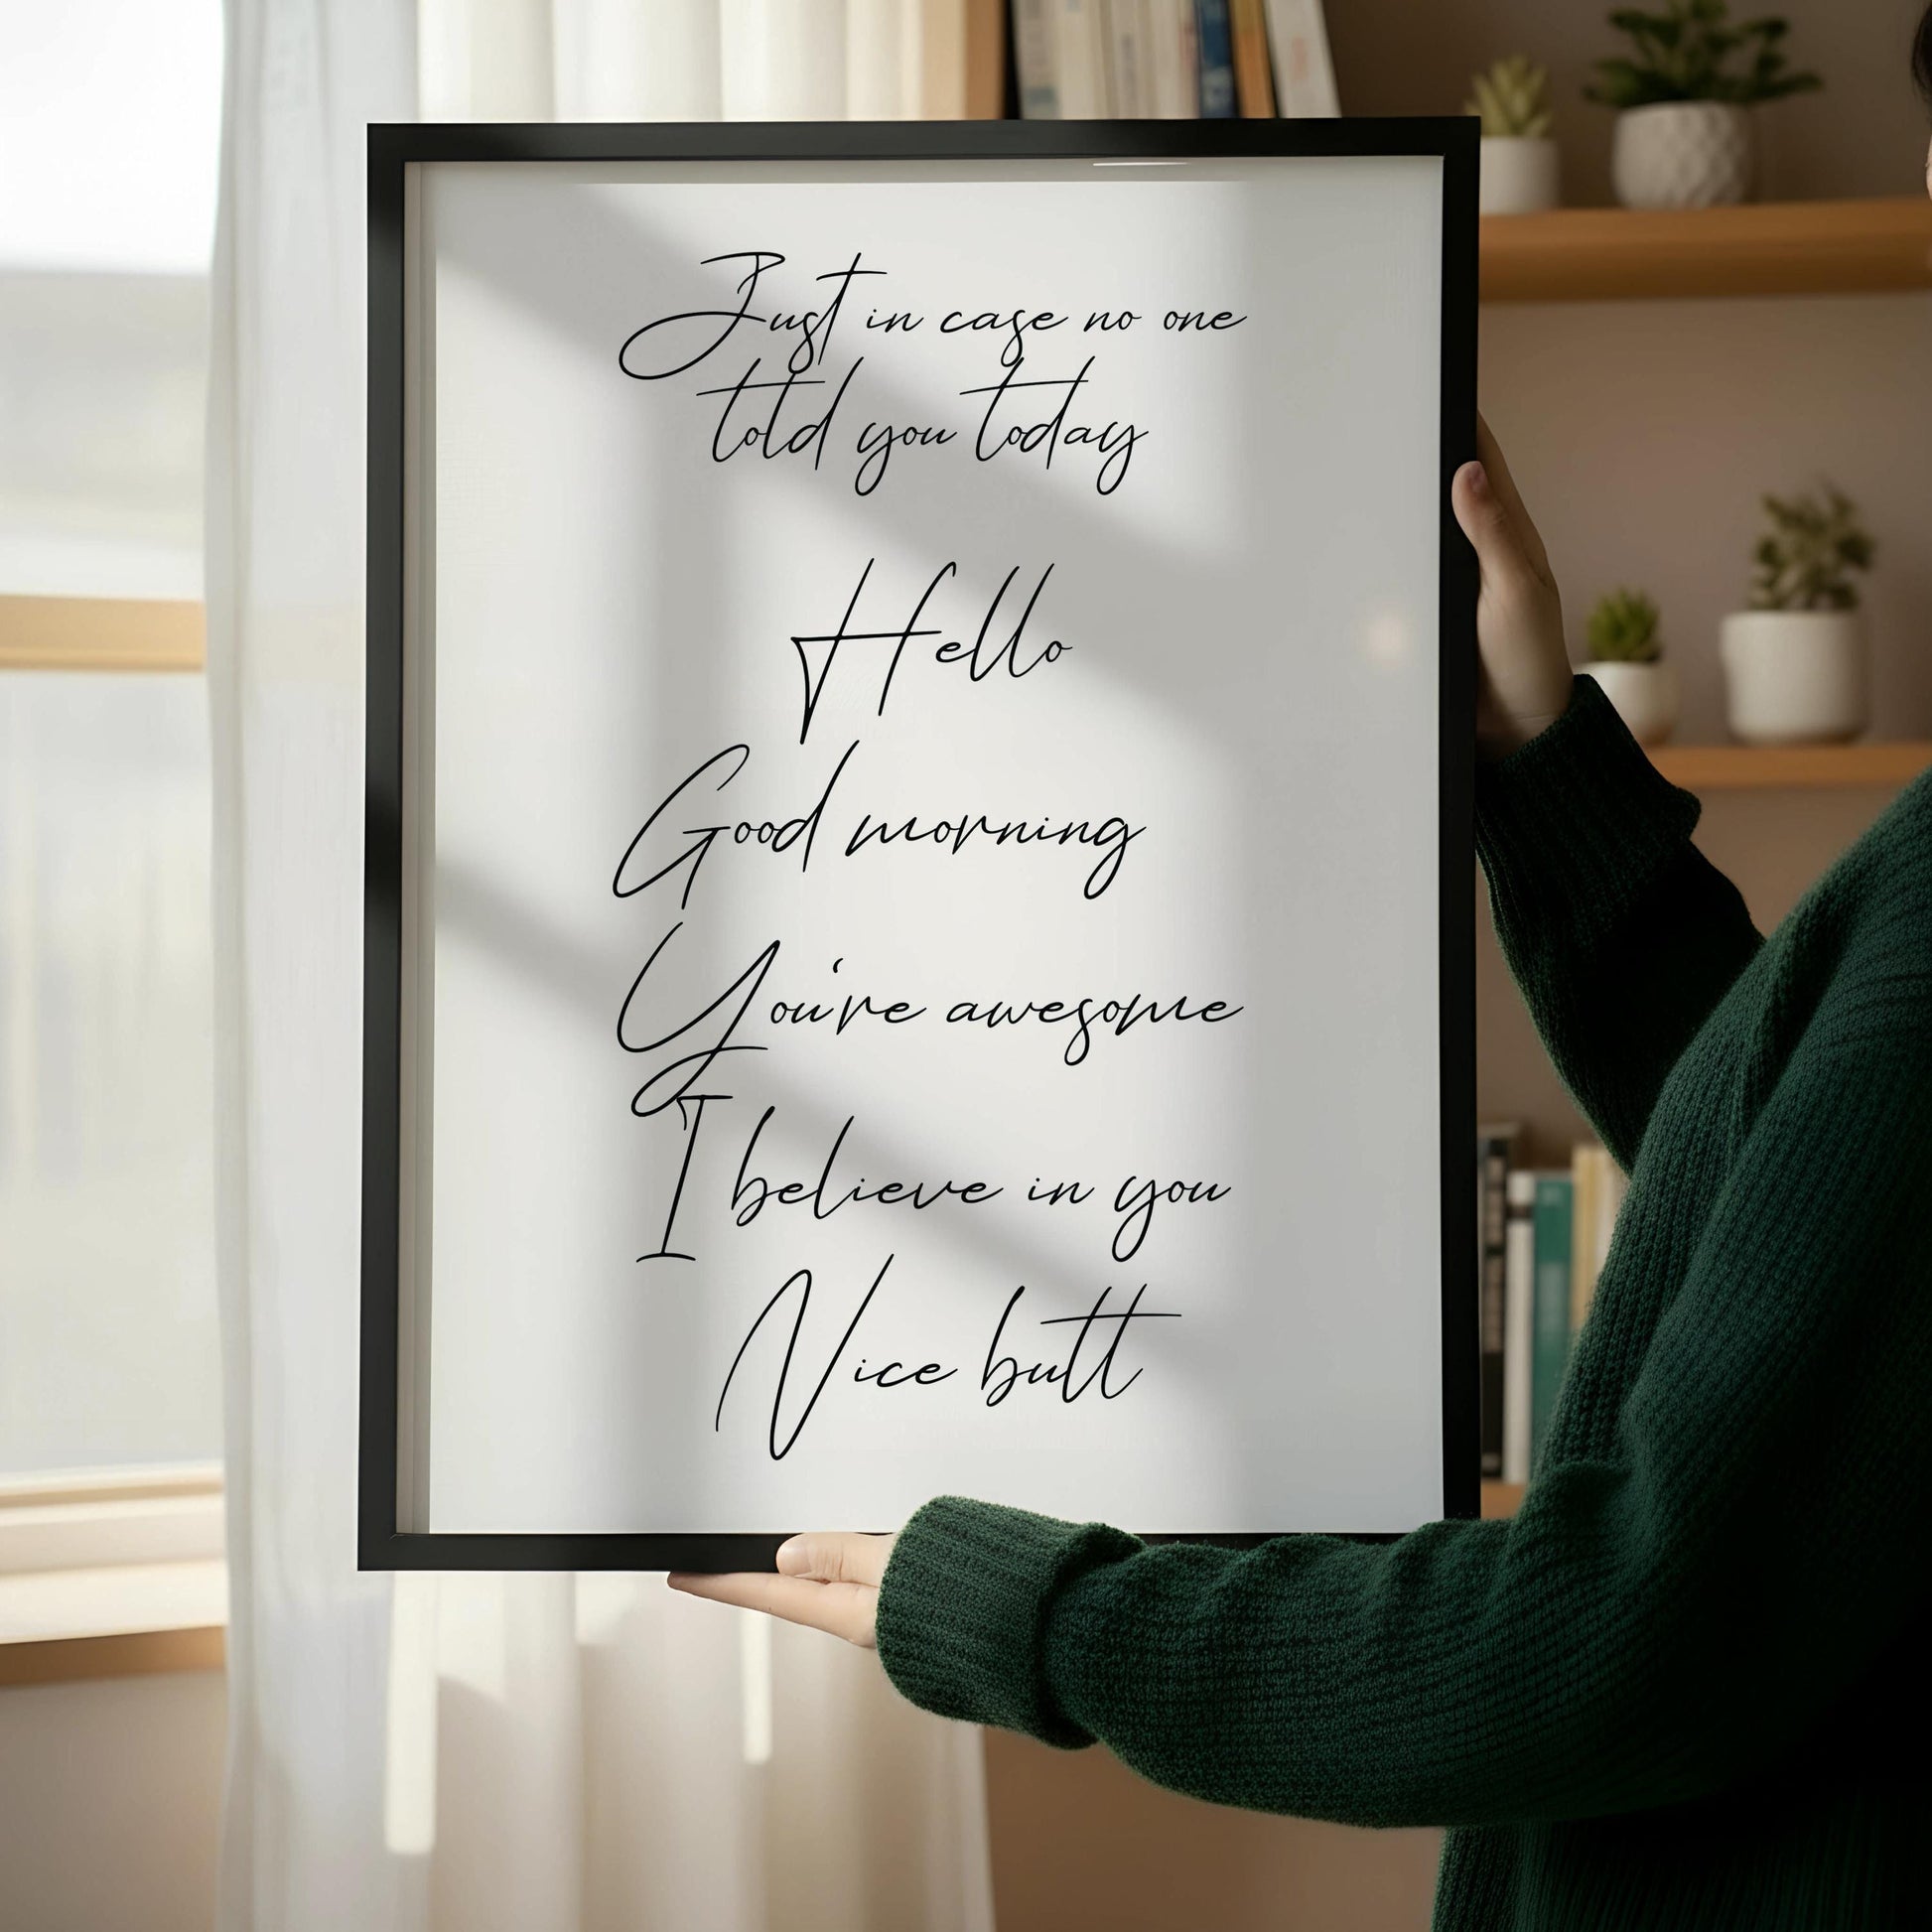 Just in case no one
told you today
Hello
Good morning
You're awesome
I believe in you
Nice butt